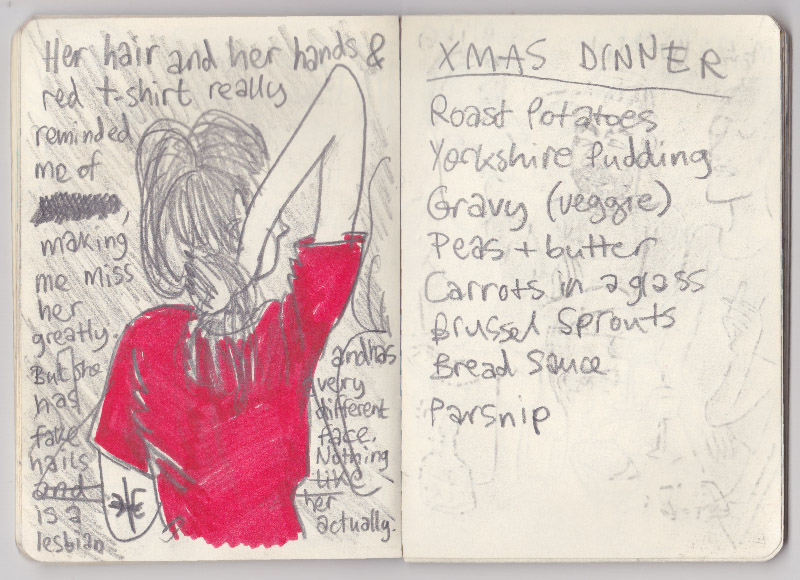 Her hair and her hands &
red t-shirt really
reminded
me of
,
making
me miss
her
greatly.
But she
has
fake
nails
and
is a
lesbian
and has
very
different
face.
Nothing
LIKE
her
actually.
XMAS DINNER
Roast Potatoes
Yorkshire Pudding
Gravy (veggie)
Peas + butter
Carrots in a glass
Brussel Sprouts
Bread Sauce
Parsnip